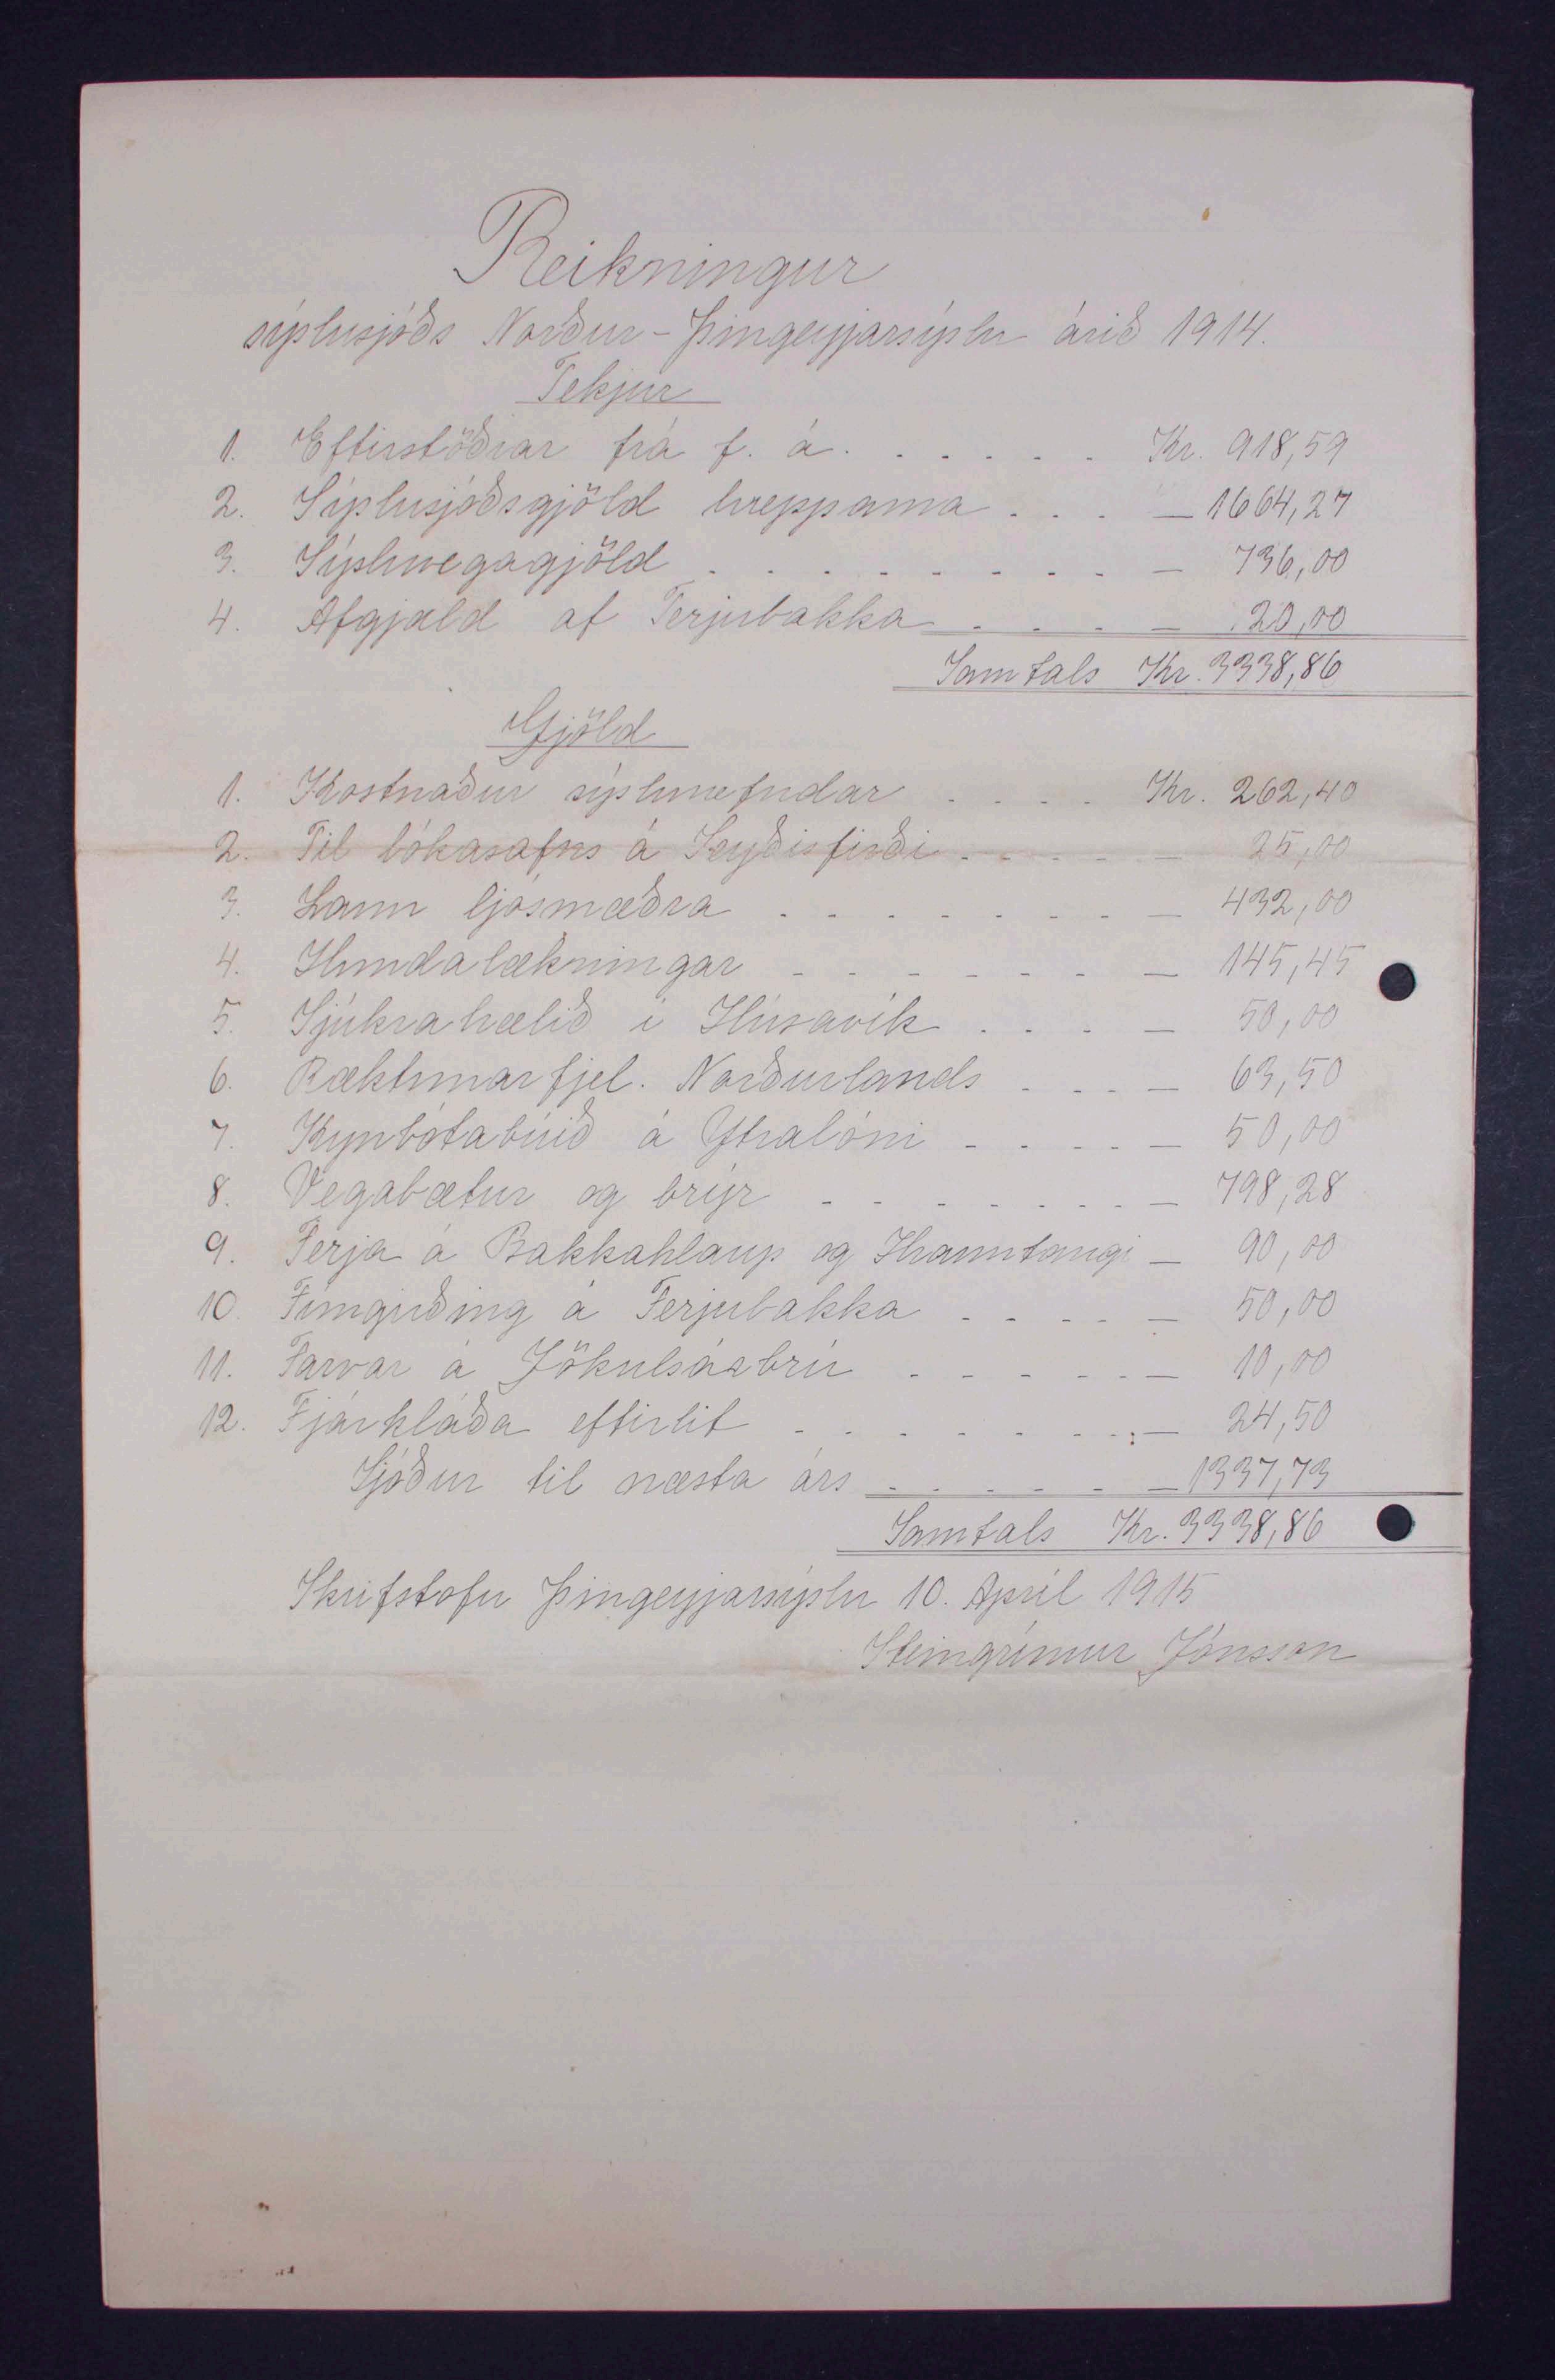 Reikningur
sýslusjóðs Norður-Þingeyjarsýslu árið 1914.
Tekjur
1. Eftirstöðvar frá f. á. . . . . . . Kr. 918,59
2. Sýslusjóðsgjöld hreppanna . . . — 1664,27
3. Sýsluvegagjöld . . . . . . . . . — 736,00
4. Afgjald af Ferjubakka . . . . — 20,00
Samtals Kr. 3338,86
Gjöld
1. Kostnaður sýslunefndar . . . . Kr. 262,40
2. Til bókasafns á Seyðisfirði . . . . . — 25,00
3. Laun ljósmæðra . . . . . . . . . — 432,00
4. Hundalækningar . . . . . . . — 145,45
5. Sjúkrahælið í Húsavík . . . . — 50,00
6. Ræktunarfjel. Norðurlands . . . — 63,50
7. Kynbótabúið á Ytralóni . . . . — 50,00
8. Vegabætur og brýr . . . . . . . — 798,28
9. Ferja á Bakkahlaup og Hrauntangi — 90,00
10. Túngirðing á Ferjubakka . . . . — 50,00
11. Farvar á Jökulsárbrú . . . . . — 10,00
12. Fjárkláða eftirlit . . . . . . . . — 24,50
Sjóður til næsta árs . . . . . — 1337,73
Samtals Kr. 3338,86
Skrifstofu Þingeyjarsýslu 10. Apríl 1915
Steingrímur Jónsson